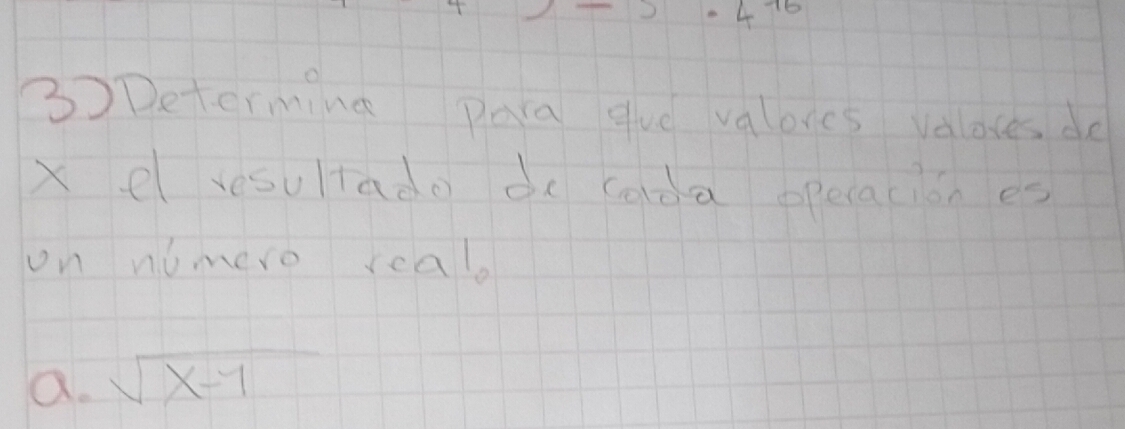 3) Determina para que valores valores de
x el resultado de cada operación es
un número real.
a. √x-1